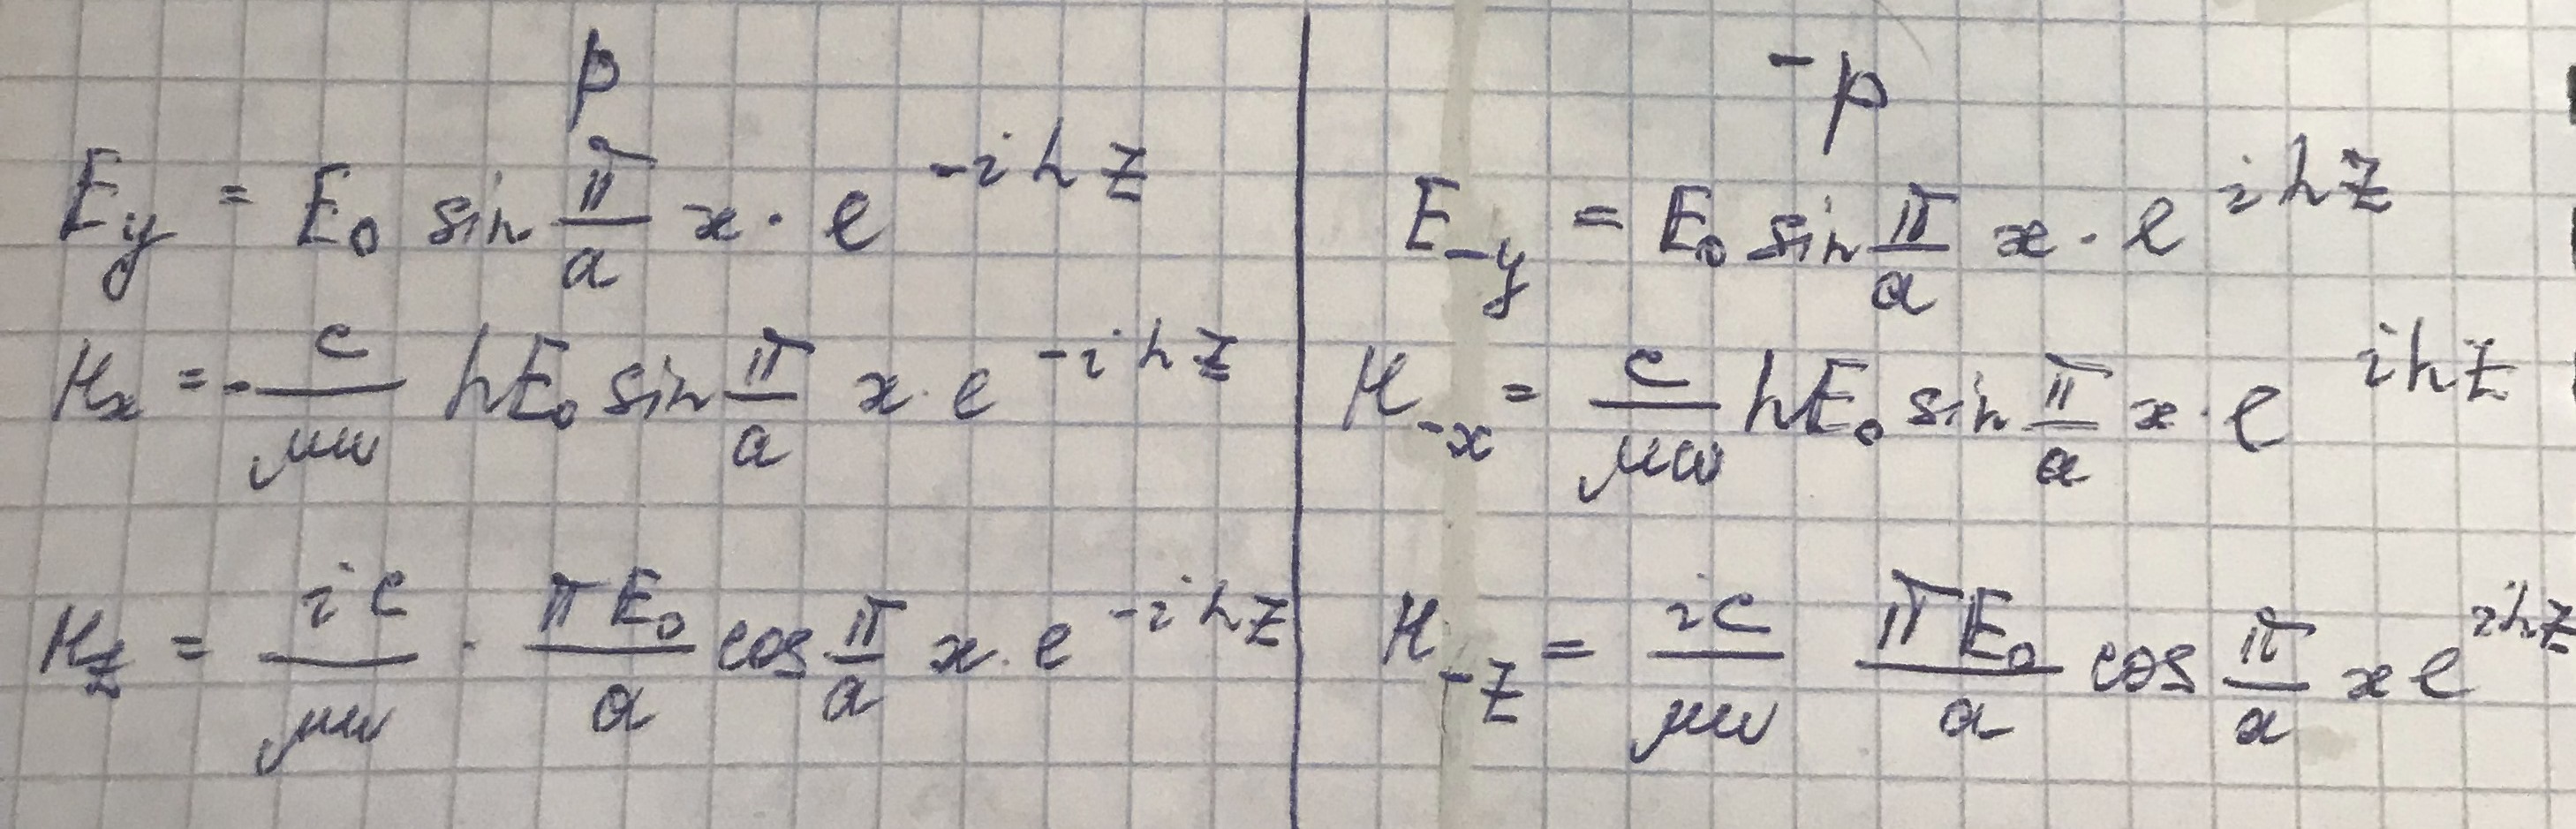 p
E_y = E_0 sin π/a x · e^{-ihz}
H_x = - c/μω hE_0 sin π/a x · e^{-ihz}
H_z = ic/μω · πE_0/a cos π/a x · e^{-ihz}
-p
E_{-y} = E_0 sin π/a x · e^{ihz}
H_{-x} = c/μω hE_0 sin π/a x · e^{ihz}
H_{-z} = ic/μω πE_0/a cos π/a x e^{ihz}